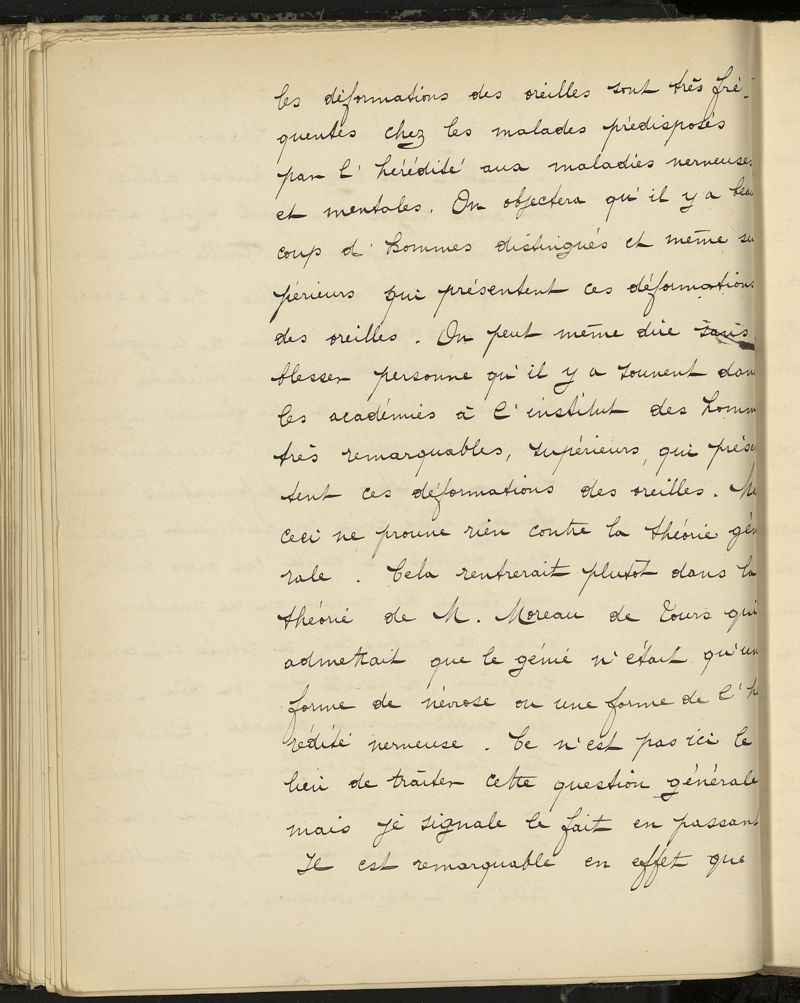 les déformations des oreilles sont très fré-
quentes chez les malades prédisposés
par l'hérédité aux maladies nerveuses
et mentales. On objectera qu'il y a beau
coup d'hommes distingués et même su
périeurs qui présentent ces déformations
des oreilles. On peut même dire sans
blesser personne qu'il y a souvent dans
les académies à l'institut des homm
très remarquables, supérieurs, qui prése
tent ces déformations des oreilles. Ma
ceci ne prouve rien contre la théorie gén
rale. Cela rentrerait plutôt dans la
théorie de M. Moreau de Tours qui
admettait que le génie n'était qu'un
forme de névrose ou une forme de l'hé
rédité nerveuse. Ce n'est pas ici le
lieu de traiter cette question générale
mais je signale le fait en passant
Il est remarquable en effet que